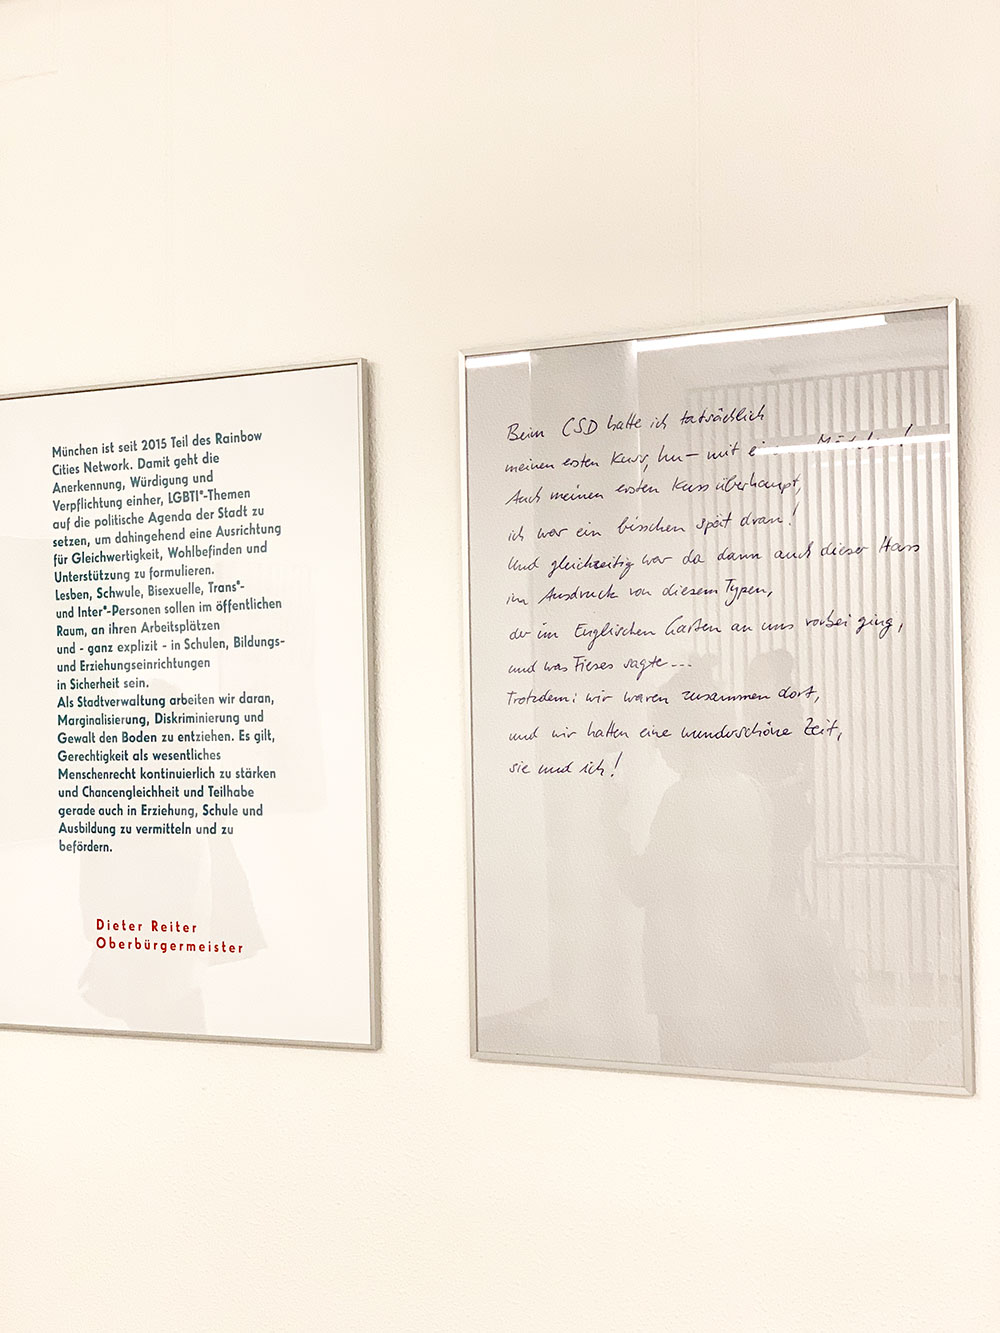 München ist seit 2015 Teil des Rainbow
Cities Network. Damit geht die
Anerkennung, Würdigung und
Verpflichtung einher, LGBTI*-Themen
auf die politische Agenda der Stadt zu
setzen, um dahingehend eine Ausrichtung
für Gleichwertigkeit, Wohlbefinden und
Unterstützung zu formulieren.
Lesben, Schwule, Bisexuelle, Trans*-
und Inter*-Personen sollen im öffentlichen
Raum, an ihren Arbeitsplätzen
und - ganz explizit - in Schulen, Bildungs-
und Erziehungseinrichtungen
in Sicherheit sein.
Als Stadtverwaltung arbeiten wir daran,
Marginalisierung, Diskriminierung und
Gewalt den Boden zu entziehen. Es gilt,
Gerechtigkeit als wesentliches
Menschenrecht kontinuierlich zu stärken
und Chancengleichheit und Teilhabe
gerade auch in Erziehung, Schule und
Ausbildung zu vermitteln und zu
befördern.
Dieter Reiter
Oberbürgermeister
Beim CSD hatte ich tatsächlich
meinen ersten Kuss, – mit
Auch meinen ersten Kuss überhaupt,
ich war ein bisschen spät dran!
Und gleichzeitig war da dann auch dieser Hass
im Ausdruck von diesem Typen,
der im Englischen Garten an uns vorbei ging,
und was Fieses sagte...
Trotzdem: wir waren zusammen dort,
und wir hatten eine wunderschöne Zeit,
sie und ich!